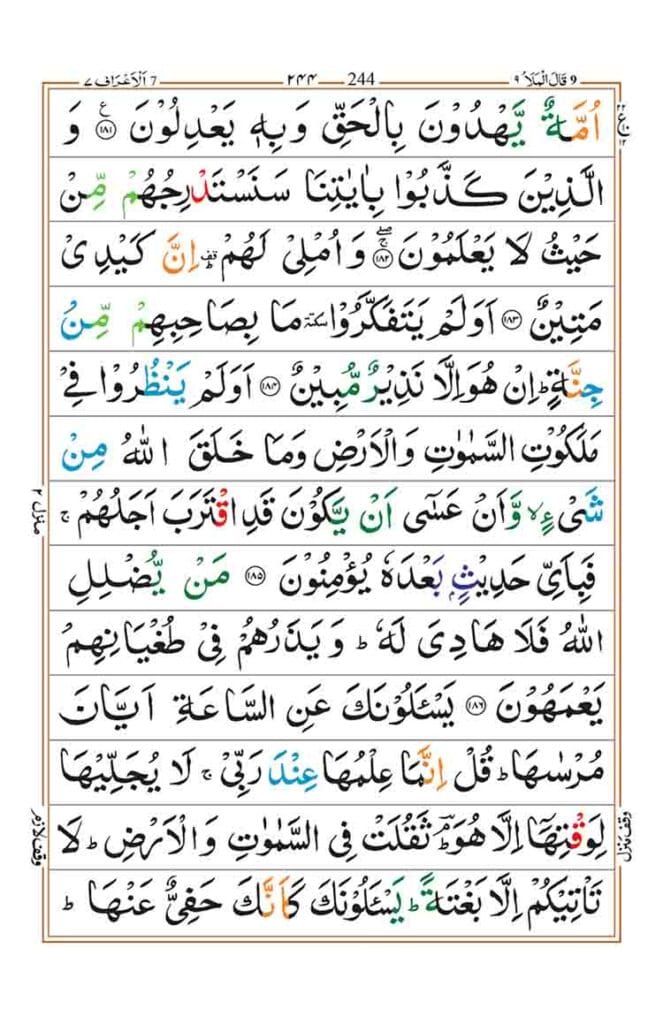 7 اَلْاَعْرَاف ٧ ٢٤٤ 244 9 قَالَ الْمَلَاُ ٩
اُمَّةٌ يَّهْدُوْنَ بِالْحَقِّ وَبِهٖ يَعْدِلُوْنَ ۝١٨١ ع وَ
الَّذِيْنَ كَذَّبُوْا بِاٰيٰتِنَا سَنَسْتَدْرِجُهُمْ مِّنْ
حَيْثُ لَا يَعْلَمُوْنَ ۝١٨٢ وَاُمْلِيْ لَهُمْ ؕ اِنَّ كَيْدِيْ
مَتِيْنٌ ۝١٨٣ اَوَلَمْ يَتَفَكَّرُوْا سكتة مَا بِصَاحِبِهِمْ مِّنْ
جِنَّةٍ ؕ اِنْ هُوَ اِلَّا نَذِيْرٌ مُّبِيْنٌ ۝١٨٤ اَوَلَمْ يَنْظُرُوْا فِيْ
مَلَكُوْتِ السَّمٰوٰتِ وَالْاَرْضِ وَمَا خَلَقَ اللّٰهُ مِنْ
شَيْءٍ ۙ وَّاَنْ عَسٰٓى اَنْ يَّكُوْنَ قَدِ اقْتَرَبَ اَجَلُهُمْ ۚ
فَبِاَيِّ حَدِيْثٍۭ بَعْدَهٗ يُؤْمِنُوْنَ ۝١٨٥ مَنْ يُّضْلِلِ
اللّٰهُ فَلَا هَادِيَ لَهٗ ؕ وَيَذَرُهُمْ فِيْ طُغْيَانِهِمْ
يَعْمَهُوْنَ ۝١٨٦ يَسْـَٔلُوْنَكَ عَنِ السَّاعَةِ اَيَّانَ
مُرْسٰىهَا ؕ قُلْ اِنَّمَا عِلْمُهَا عِنْدَ رَبِّيْ ۚ لَا يُجَلِّيْهَا
لِوَقْتِهَاۤ اِلَّا هُوَ ؔؕ ثَقُلَتْ فِى السَّمٰوٰتِ وَالْاَرْضِ ؕ لَا
تَاْتِيْكُمْ اِلَّا بَغْتَةً ؕ يَسْـَٔلُوْنَكَ كَاَنَّكَ حَفِيٌّ عَنْهَا ؕ
منزل ٢
وقف لازم
وقف منزل